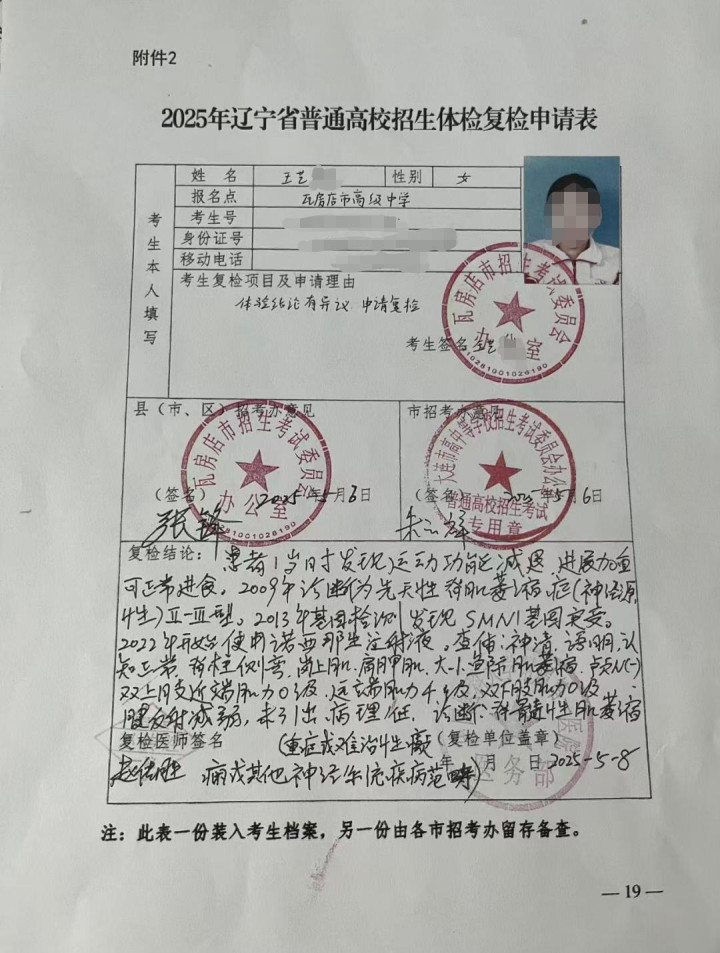 附件2
2025年辽宁省普通高校招生体检复检申请表
考生本人填写
姓 名 王艺 性别 女
报名点 瓦房店市高级中学
考生号
身份证号
移动电话
考生复检项目及申请理由
体验结论有异议 申请复检
考生签名 王艺
瓦房店市招生考试委员会
办公室
县（市、区）招考办意见
瓦房店市招生考试委员会
办公室
（签名） 2025年5月6日
市招考办意见
大连市高中等学校招生考试委员会办公室
普通高校招生考试
专用章
（签名） 2025年5月6日
复检结论：患者1岁时发现运动功能减退 进展加重
可正常进食。2009年诊断为先天性脊肌萎缩症(神经源
性) II-III型。2013年基因检测发现SMN1基因突变。
2022年开始使用诺西那生注射液。查体：神清 语明 认
知正常 脊柱侧弯 岗上肌、肩胛肌、大小鱼际肌萎缩
双上肢近端肌力0级 远端肌力4级，双下肢肌力0级
腱反射减弱，未引出病理征 诊断：脊髓性肌萎缩
复检医师签名 （重症或难治性癫 （复检单位盖章）
痫或其他神经系统疾病范畴）
年 月 日 2025-5-8
医务部
注：此表一份装入考生档案，另一份由各市招考办留存备查。
— 19 —